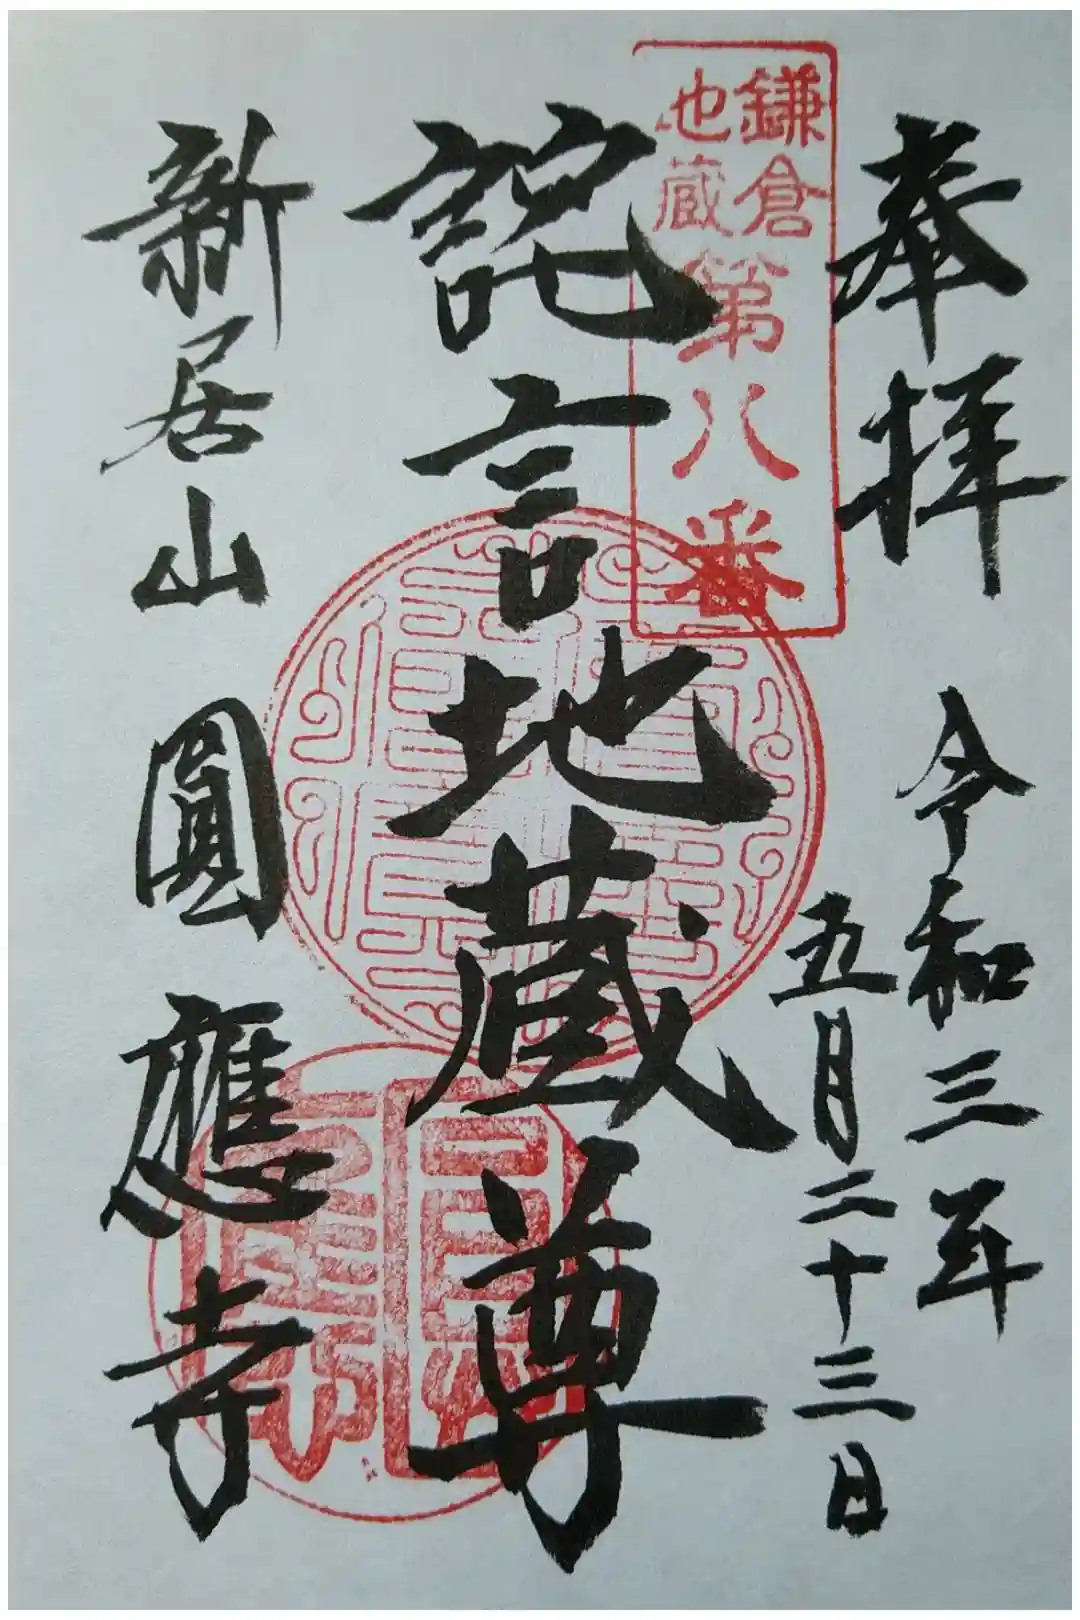 奉拝
令和三年
五月二十三日
鎌倉
地蔵
第八番
詫言地蔵尊
新居山
圓應寺